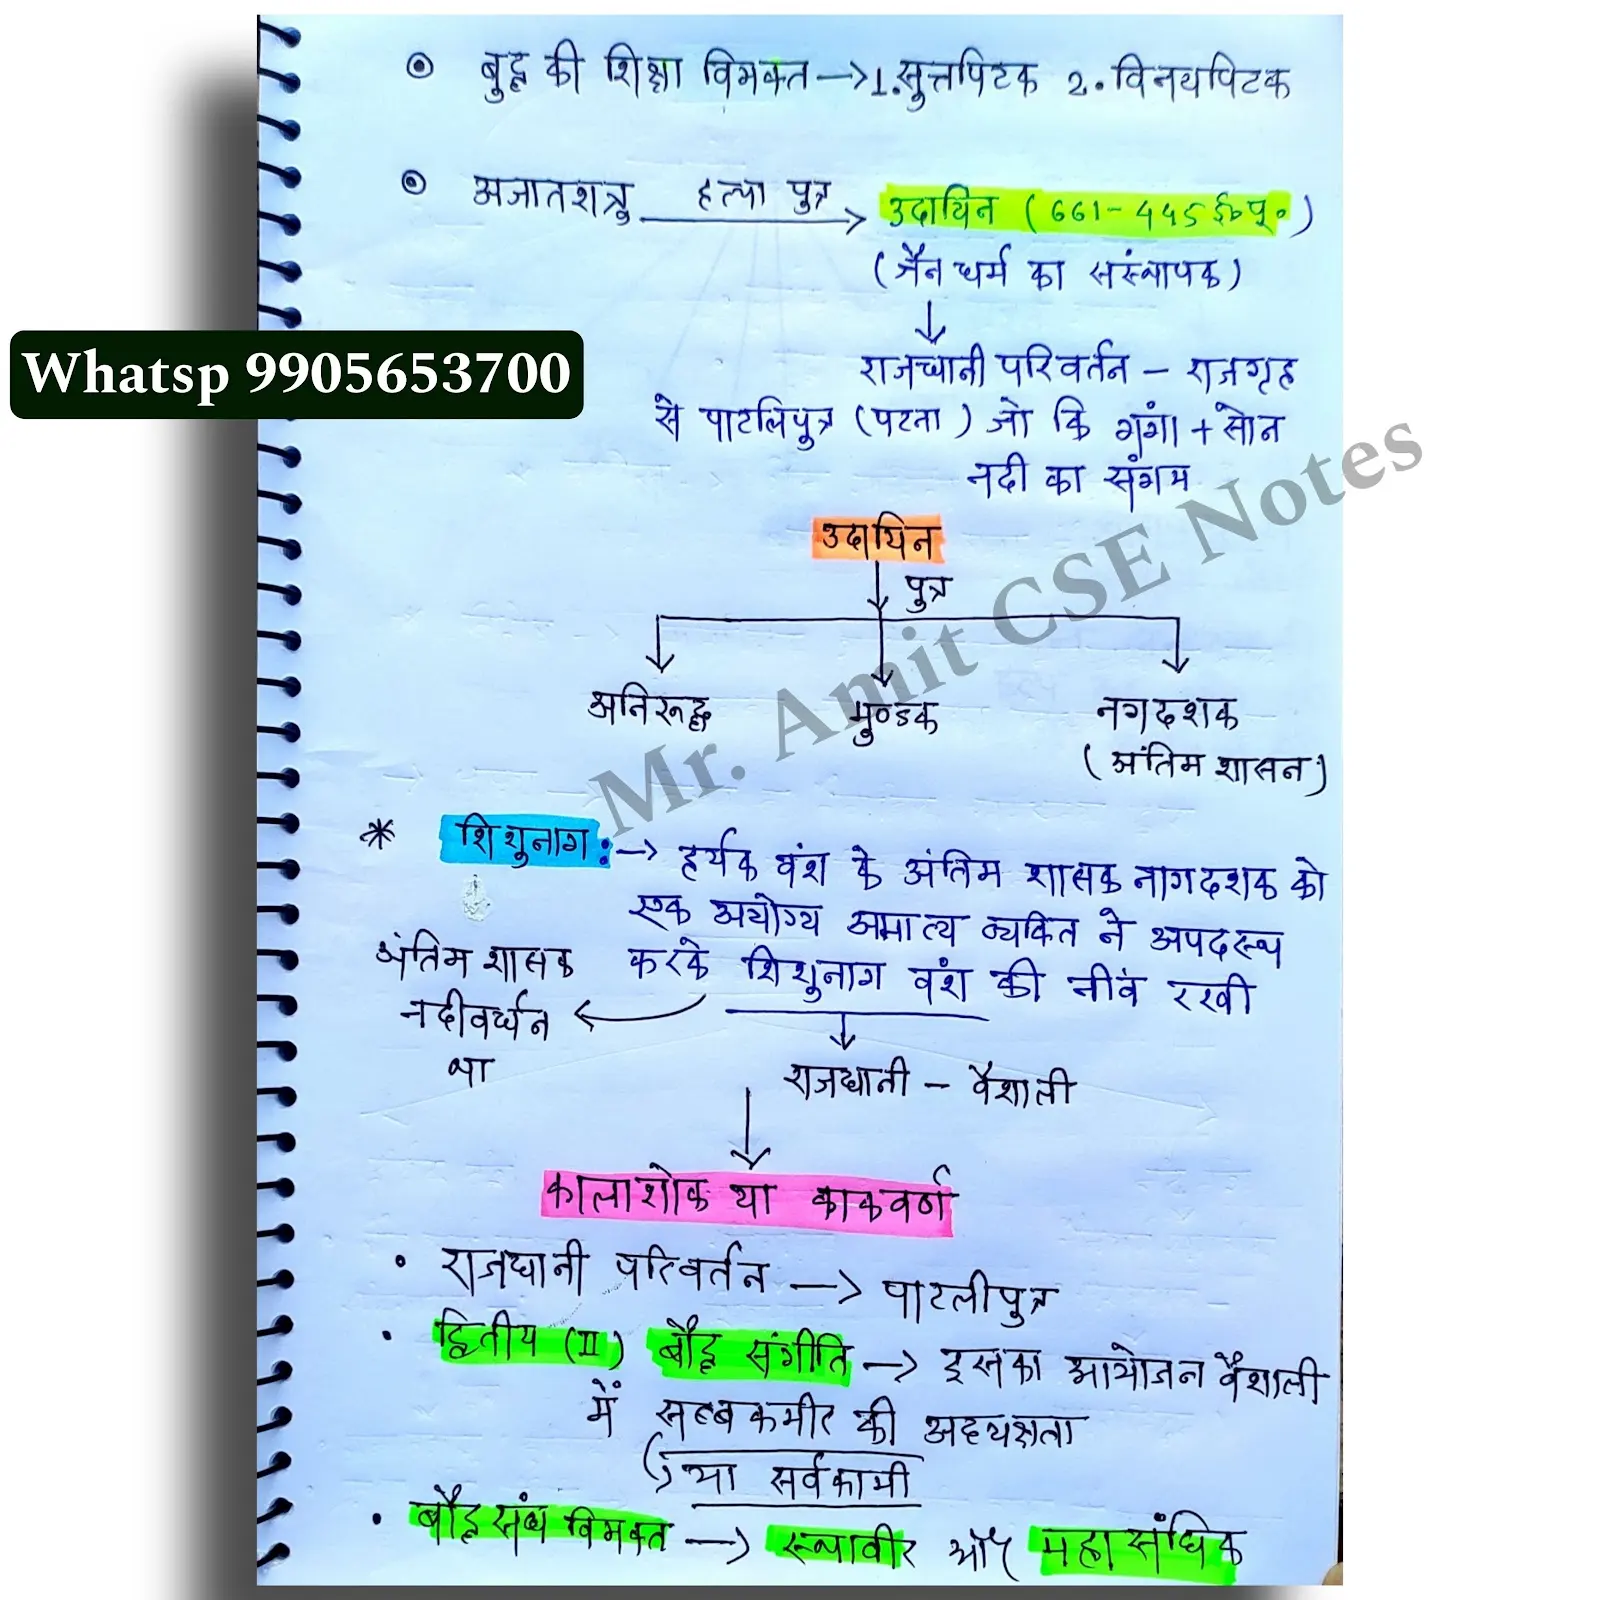 बुद्ध की शिक्षा विभक्त → 1. सुत्तपिटक 2. विनयपिटक
अजातशत्रु हत्या पुत्र → उदायिन (661-445 ई०पू०)
(जैन धर्म का संस्थापक)
↓
राजधानी परिवर्तन - राजगृह
से पाटलिपुत्र (पटना) जो कि गंगा + सोन
नदी का संगम
Whatsp 9905653700
उदायिन
पुत्र
अनिरुद्ध मुण्डक नगदशक
(अंतिम शासन)
* शिशुनाग: → हर्यक वंश के अंतिम शासक नागदशक को
एक अयोग्य अमात्य व्यक्ति ने अपदस्थ
करके शिशुनाग वंश की नीवं रखी
अंतिम शासक
नदीवर्धन
था
राजधानी - वैशाली
कालाशोक या काकवर्ण
• राजधानी परिवर्तन → पाटलीपुत्र
• द्वितीय (II) बौद्ध संगीति → इसका आयोजन वैशाली
में सब्बकमीर की अध्यक्षता
या सर्वकामी
• बौद्ध संघ विभक्त → स्थावीर और महासंघिक
Mr. Amit CSE Notes